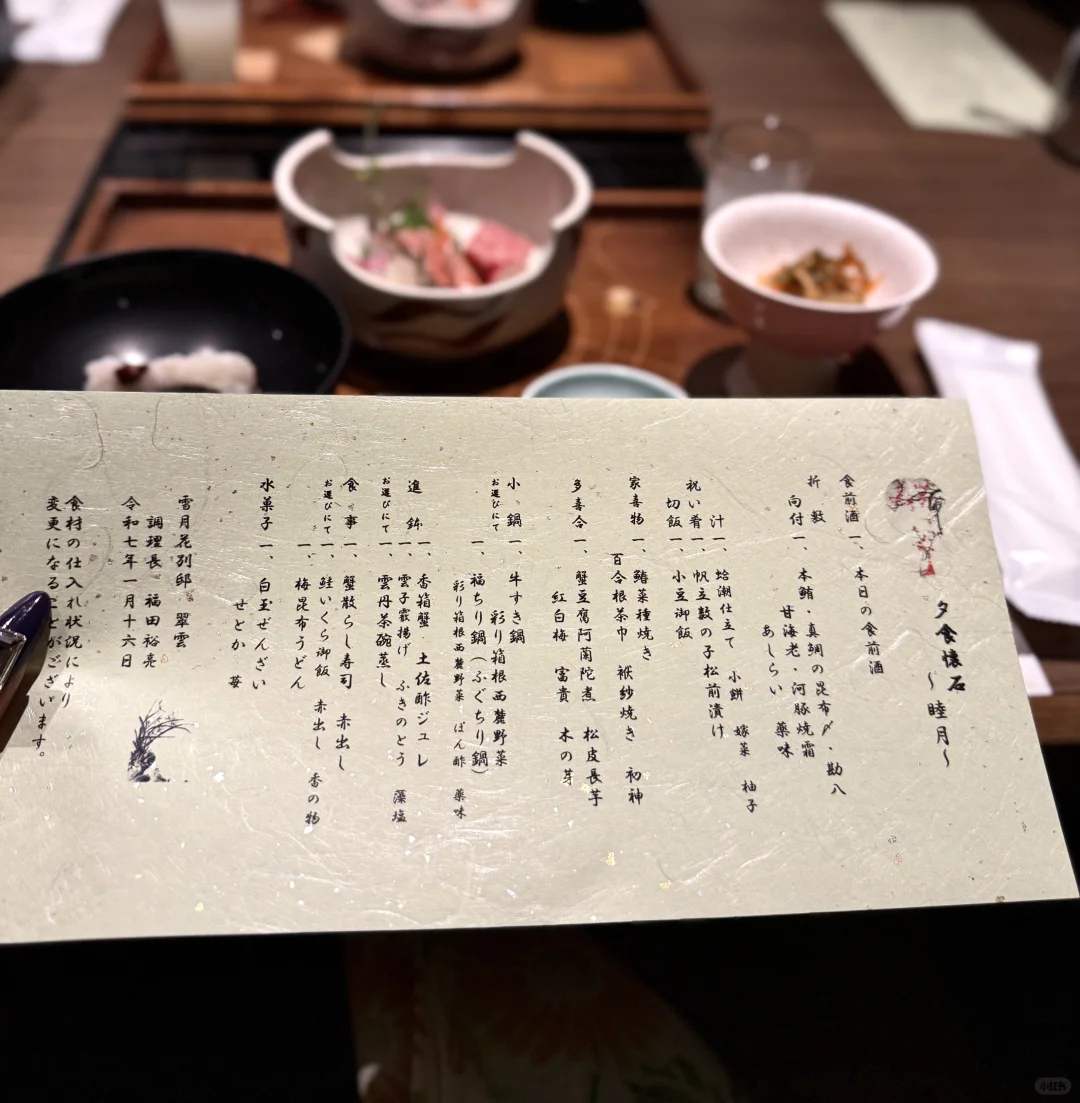 夕食懐石
～ 睦月～
食前酒 一、 本日の食前酒
折敷
向付 一、 本鮪・真鯛の昆布〆・勘八
甘海老・河豚焼霜
あしらい 薬味
汁 一、 蛤潮仕立て 小餅 嫁菜 柚子
祝い肴 一、 帆立数の子松前漬け
切飯 一、 小豆御飯
家喜物 一、 鰆菜種焼き
百合根茶巾 袱紗焼き 初神
多喜合 一、 蟹豆腐阿蘭陀煮 松皮長芋
紅白梅 富貴 木の芽
小鍋 一、 牛すき鍋
お選びにて 彩り箱根西麓野菜
一、 福ちり鍋(ふぐちり鍋)
彩り箱根西麓野菜 ぽん酢 薬味
進鉢 一、 香箱蟹 土佐酢ジュレ
お選びにて 一、 雲子霰揚げ ふきのとう 藻塩
一、 雲丹茶碗蒸し
食事 一、 蟹散らし寿司 赤出し
お選びにて 一、 鮭いくら御飯 赤出し 香の物
一、 梅昆布うどん
水菓子 一、 白玉ぜんざい
せとか 苺
雪月花別邸 翠雲
調理長 福田裕亮
令和七年一月十六日
食材の仕入れ状況により
変更になることがございます。
小红书